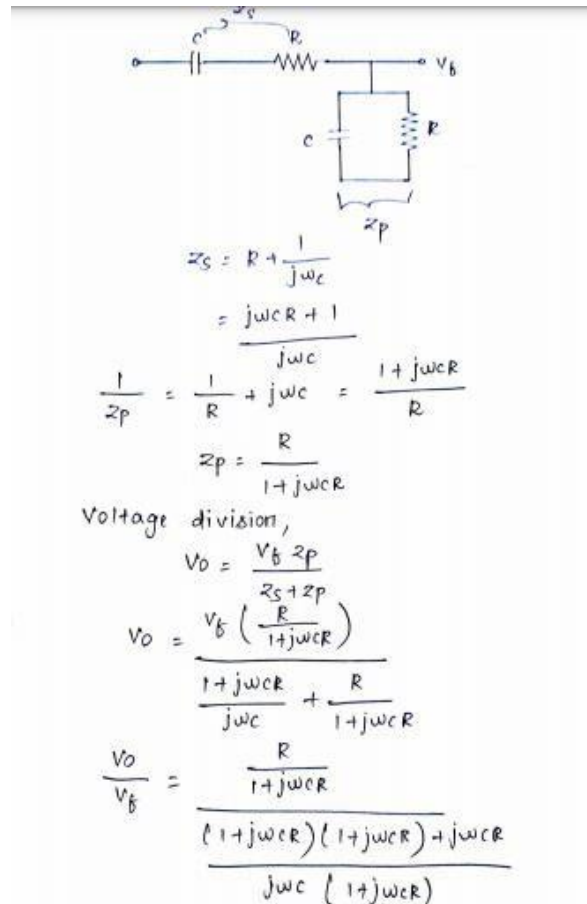 Zs
C R
Vf
C R
Zp
Zs = R + 1/jωc
= jωcR + 1 / jωc
1/Zp = 1/R + jωc = 1 + jωcR / R
Zp = R / 1 + jωcR
Voltage division,
Vo = Vf Zp / Zs + Zp
Vo = Vf (R / 1 + jωcR) / 1 + jωcR / jωc + R / 1 + jωcR
Vo/Vf = R / 1 + jωcR / (1 + jωcR)(1 + jωcR) + jωcR / jωc (1 + jωcR)